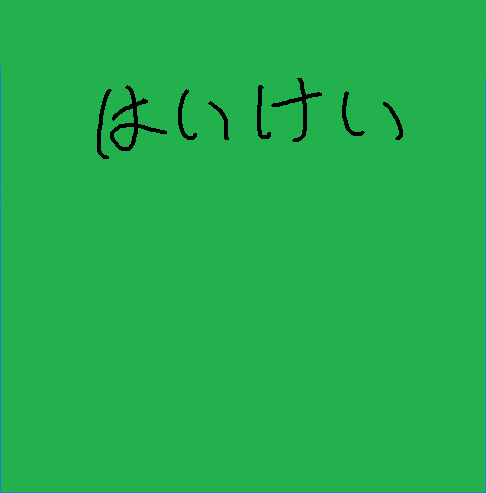 はいけい